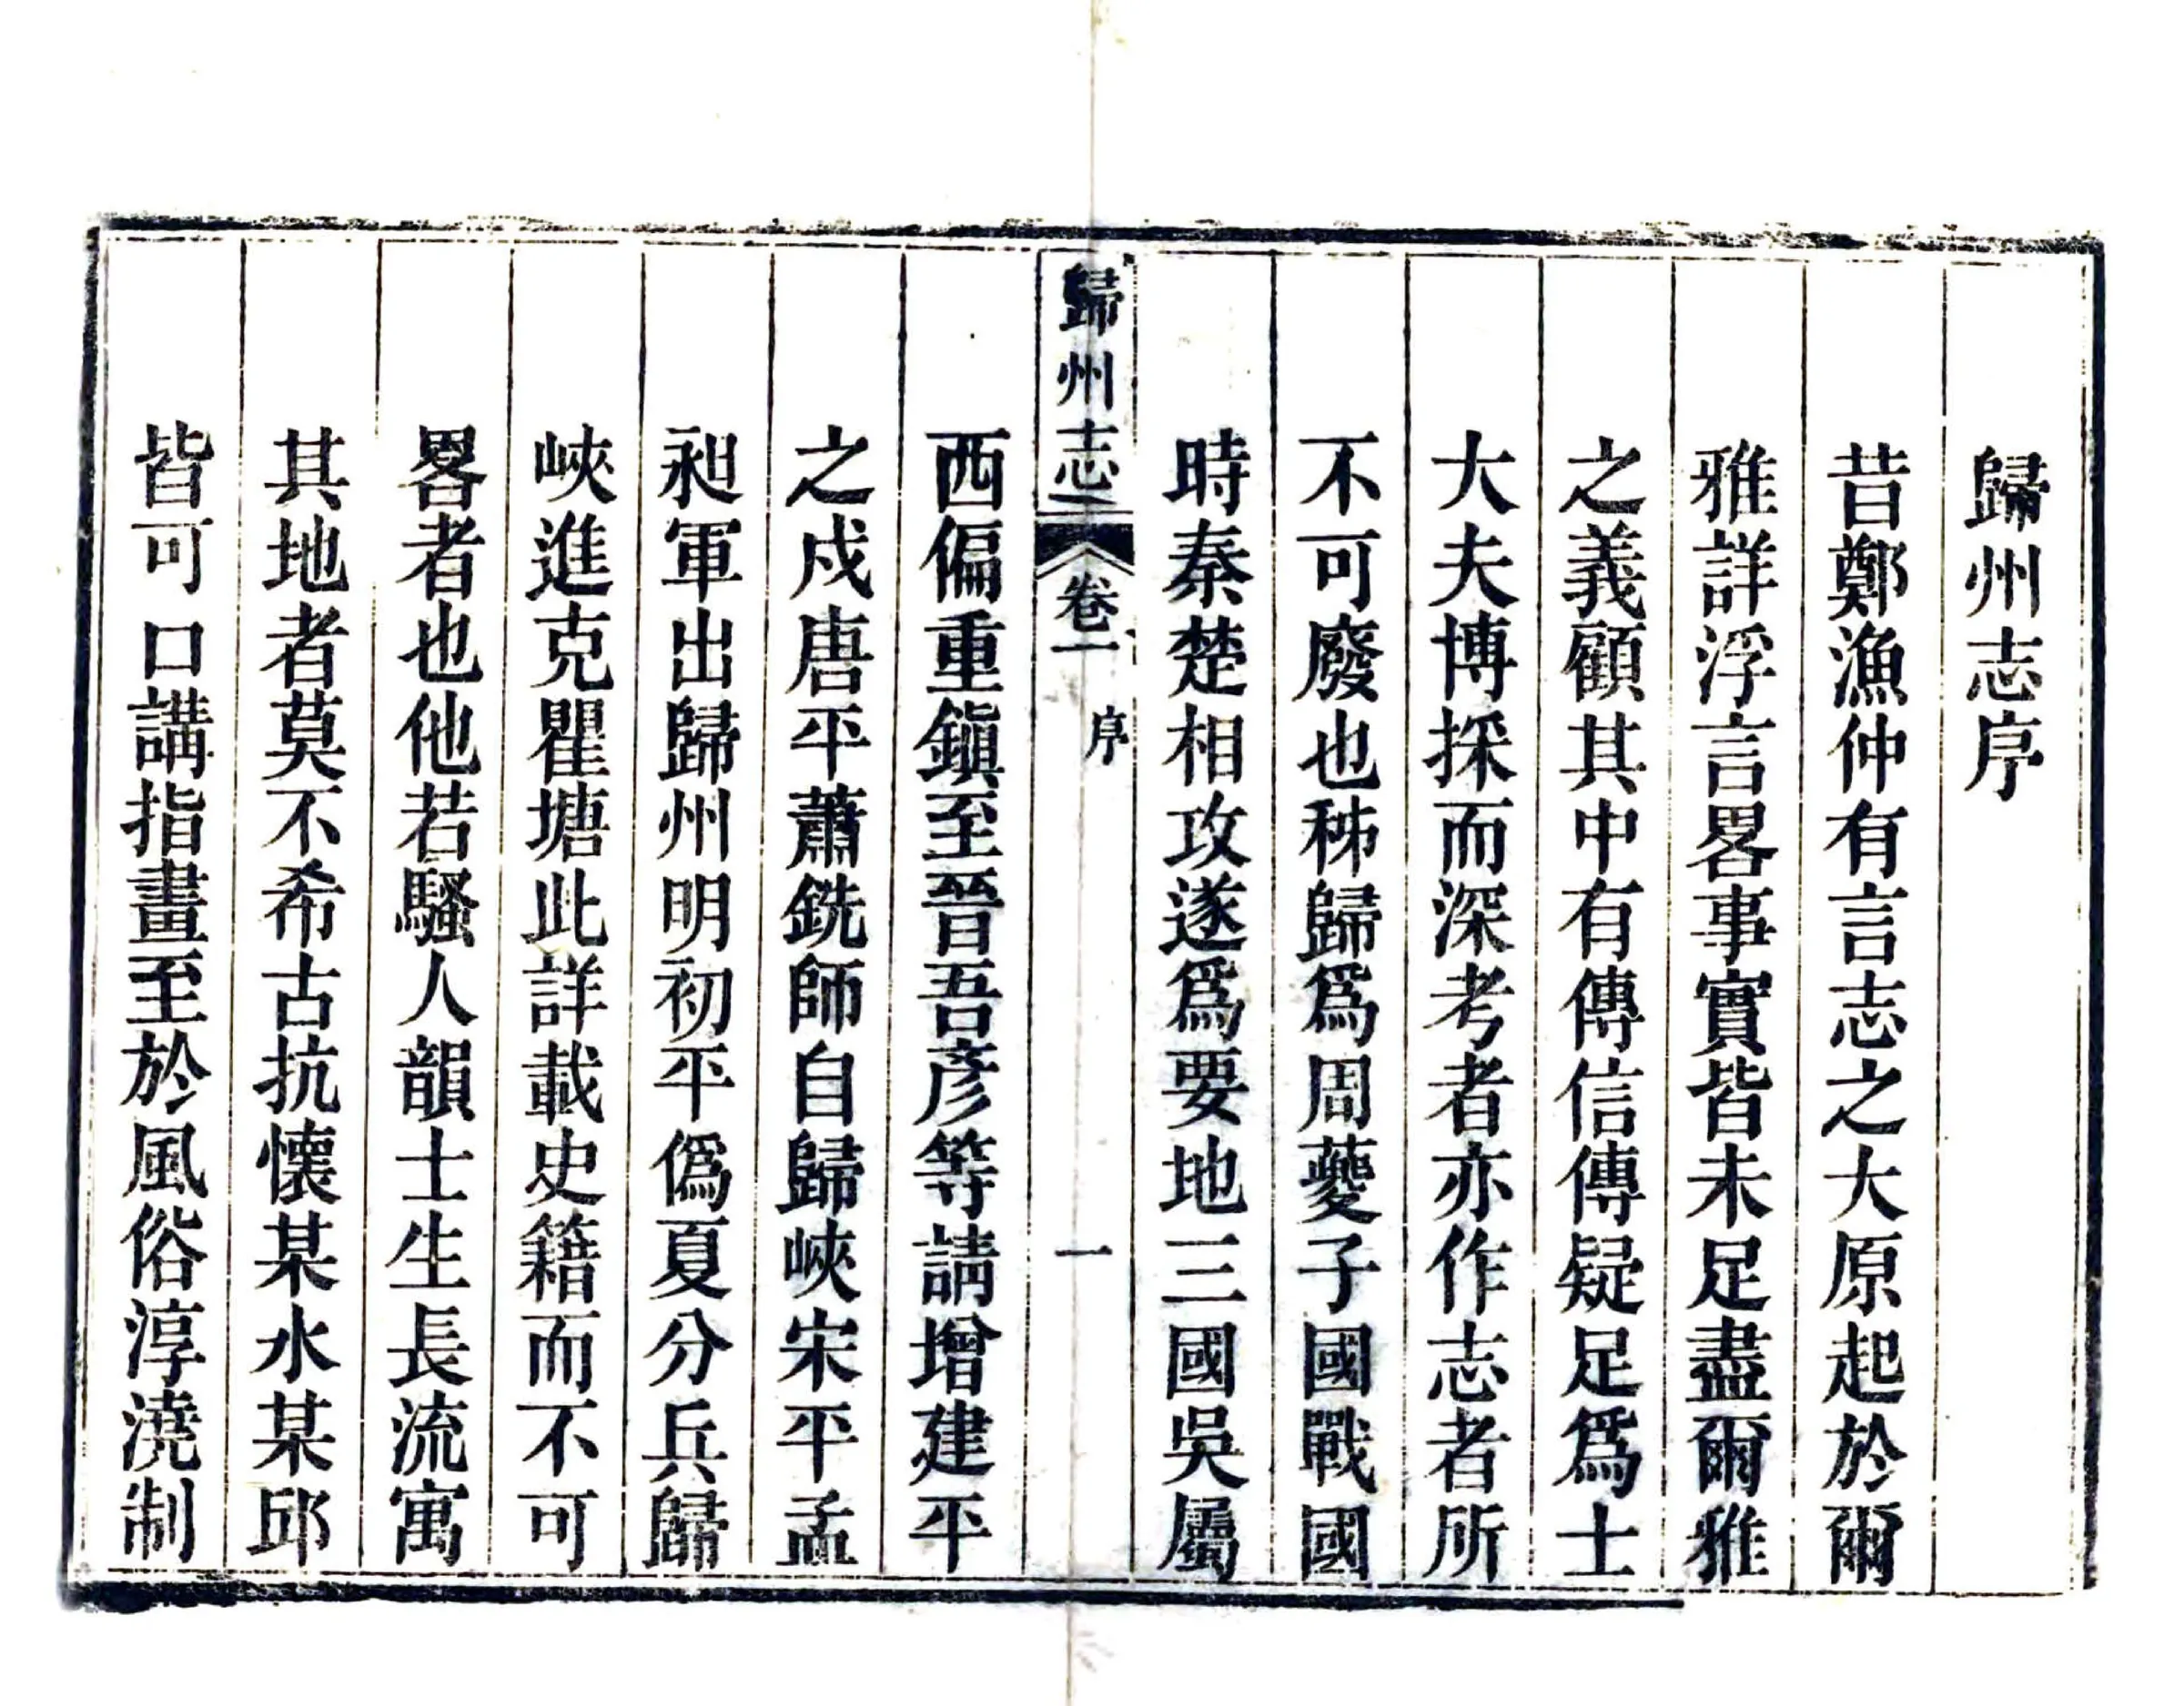 歸州志序
昔鄭漁仲有言志之大原起於爾
雅詳浮言畧事實皆未足盡爾雅
之義顧其中有傳信傳疑足爲士
大夫博採而深考者亦作志者所
不可廢也秭歸爲周夔子國戰國
時秦楚相攻遂爲要地三國吳屬
歸州志 卷一 序 一
西偏重鎭至晉吾彦等請增建平
之戍唐平蕭銑師自歸峽宋平孟
昶軍出歸州明初平僞夏分兵歸
峽進克瞿塘此詳載史籍而不可
畧者也他若騷人韻士生長流寓
其地者莫不希古抗懷某水某邱
皆可口講指畫至於風俗淳澆制